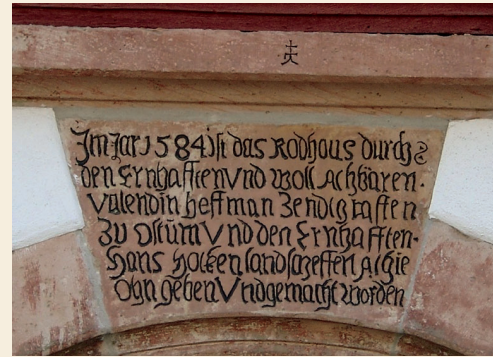 Im Jar 1584 ist das Rodhous durch
den Ernhafften Vnd woll Achbaren.
Valendin heffman Zendigraffen
Zu Ostum Vnd den Ernhafften.
Hans Hocken landschoeffen Alhie
Ohn geben Vnd gemacht worden